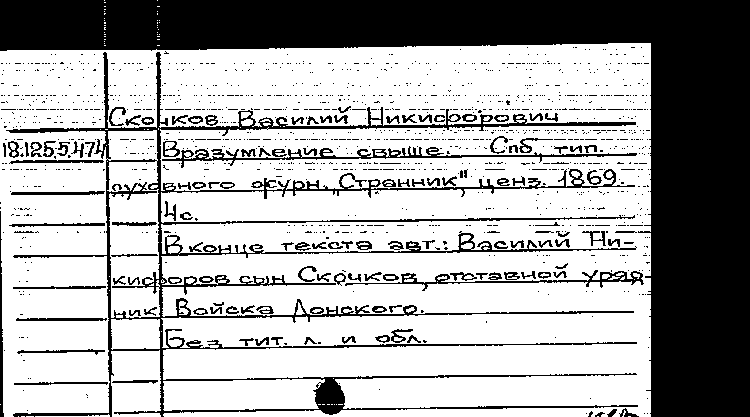 Скочков, Василий Никифорович
18.125.5.474 Вразумление свыше. Спб., тип.
духовного журн. „Странник", ценз. 1869.
4с.
В конце текста авт.: Василий Ни-
кифоров сын Скочков, отставной уряд-
ник Войска Донского.
Без тит. л. и обл.